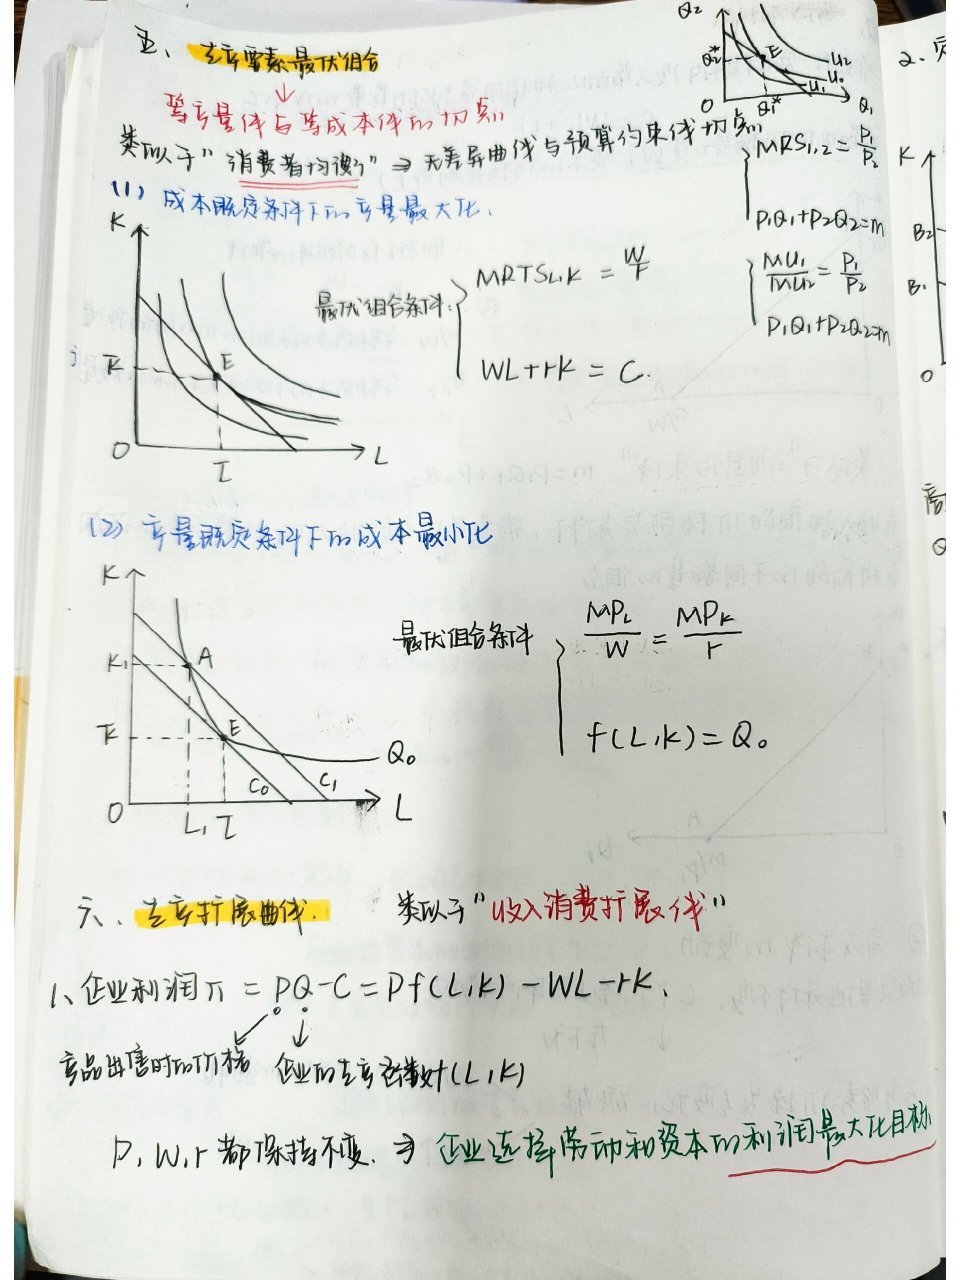 五、生产要素最优组合
↓
等产量线与等成本线的切点
类似于"消费者均衡" ⇒ 无差异曲线与预算约束线切点
Q2
Q2*
E
U2
U0
U1
O
Q1*
Q1
MRS1,2 = P1/P2
P1Q1+P2Q2=m
MU1/MU2 = P1/P2
P1Q1+P2Q2=m
(1) 成本既定条件下的产量最大化.
K
K̄
E
O
L̄
L
最优组合条件:
MRTSL,K = W/r
WL+rK = C.
(2) 产量既定条件下的成本最小化
K
K1
A
K̄
E
Q0
C0
C1
O
L1
L̄
L
最优组合条件
MPL/W = MPK/r
f(L,K)=Q0
六、生产扩展曲线.
类似于"收入消费扩展线"
1、企业利润π = PQ-C = Pf(L,K) - WL - rK,
产品出售时的价格
企业的生产函数f(L,K)
P,W,r都保持不变. ⇒ 企业选择劳动和资本的利润最大化目标
2.
K
B2
B1
O
Q